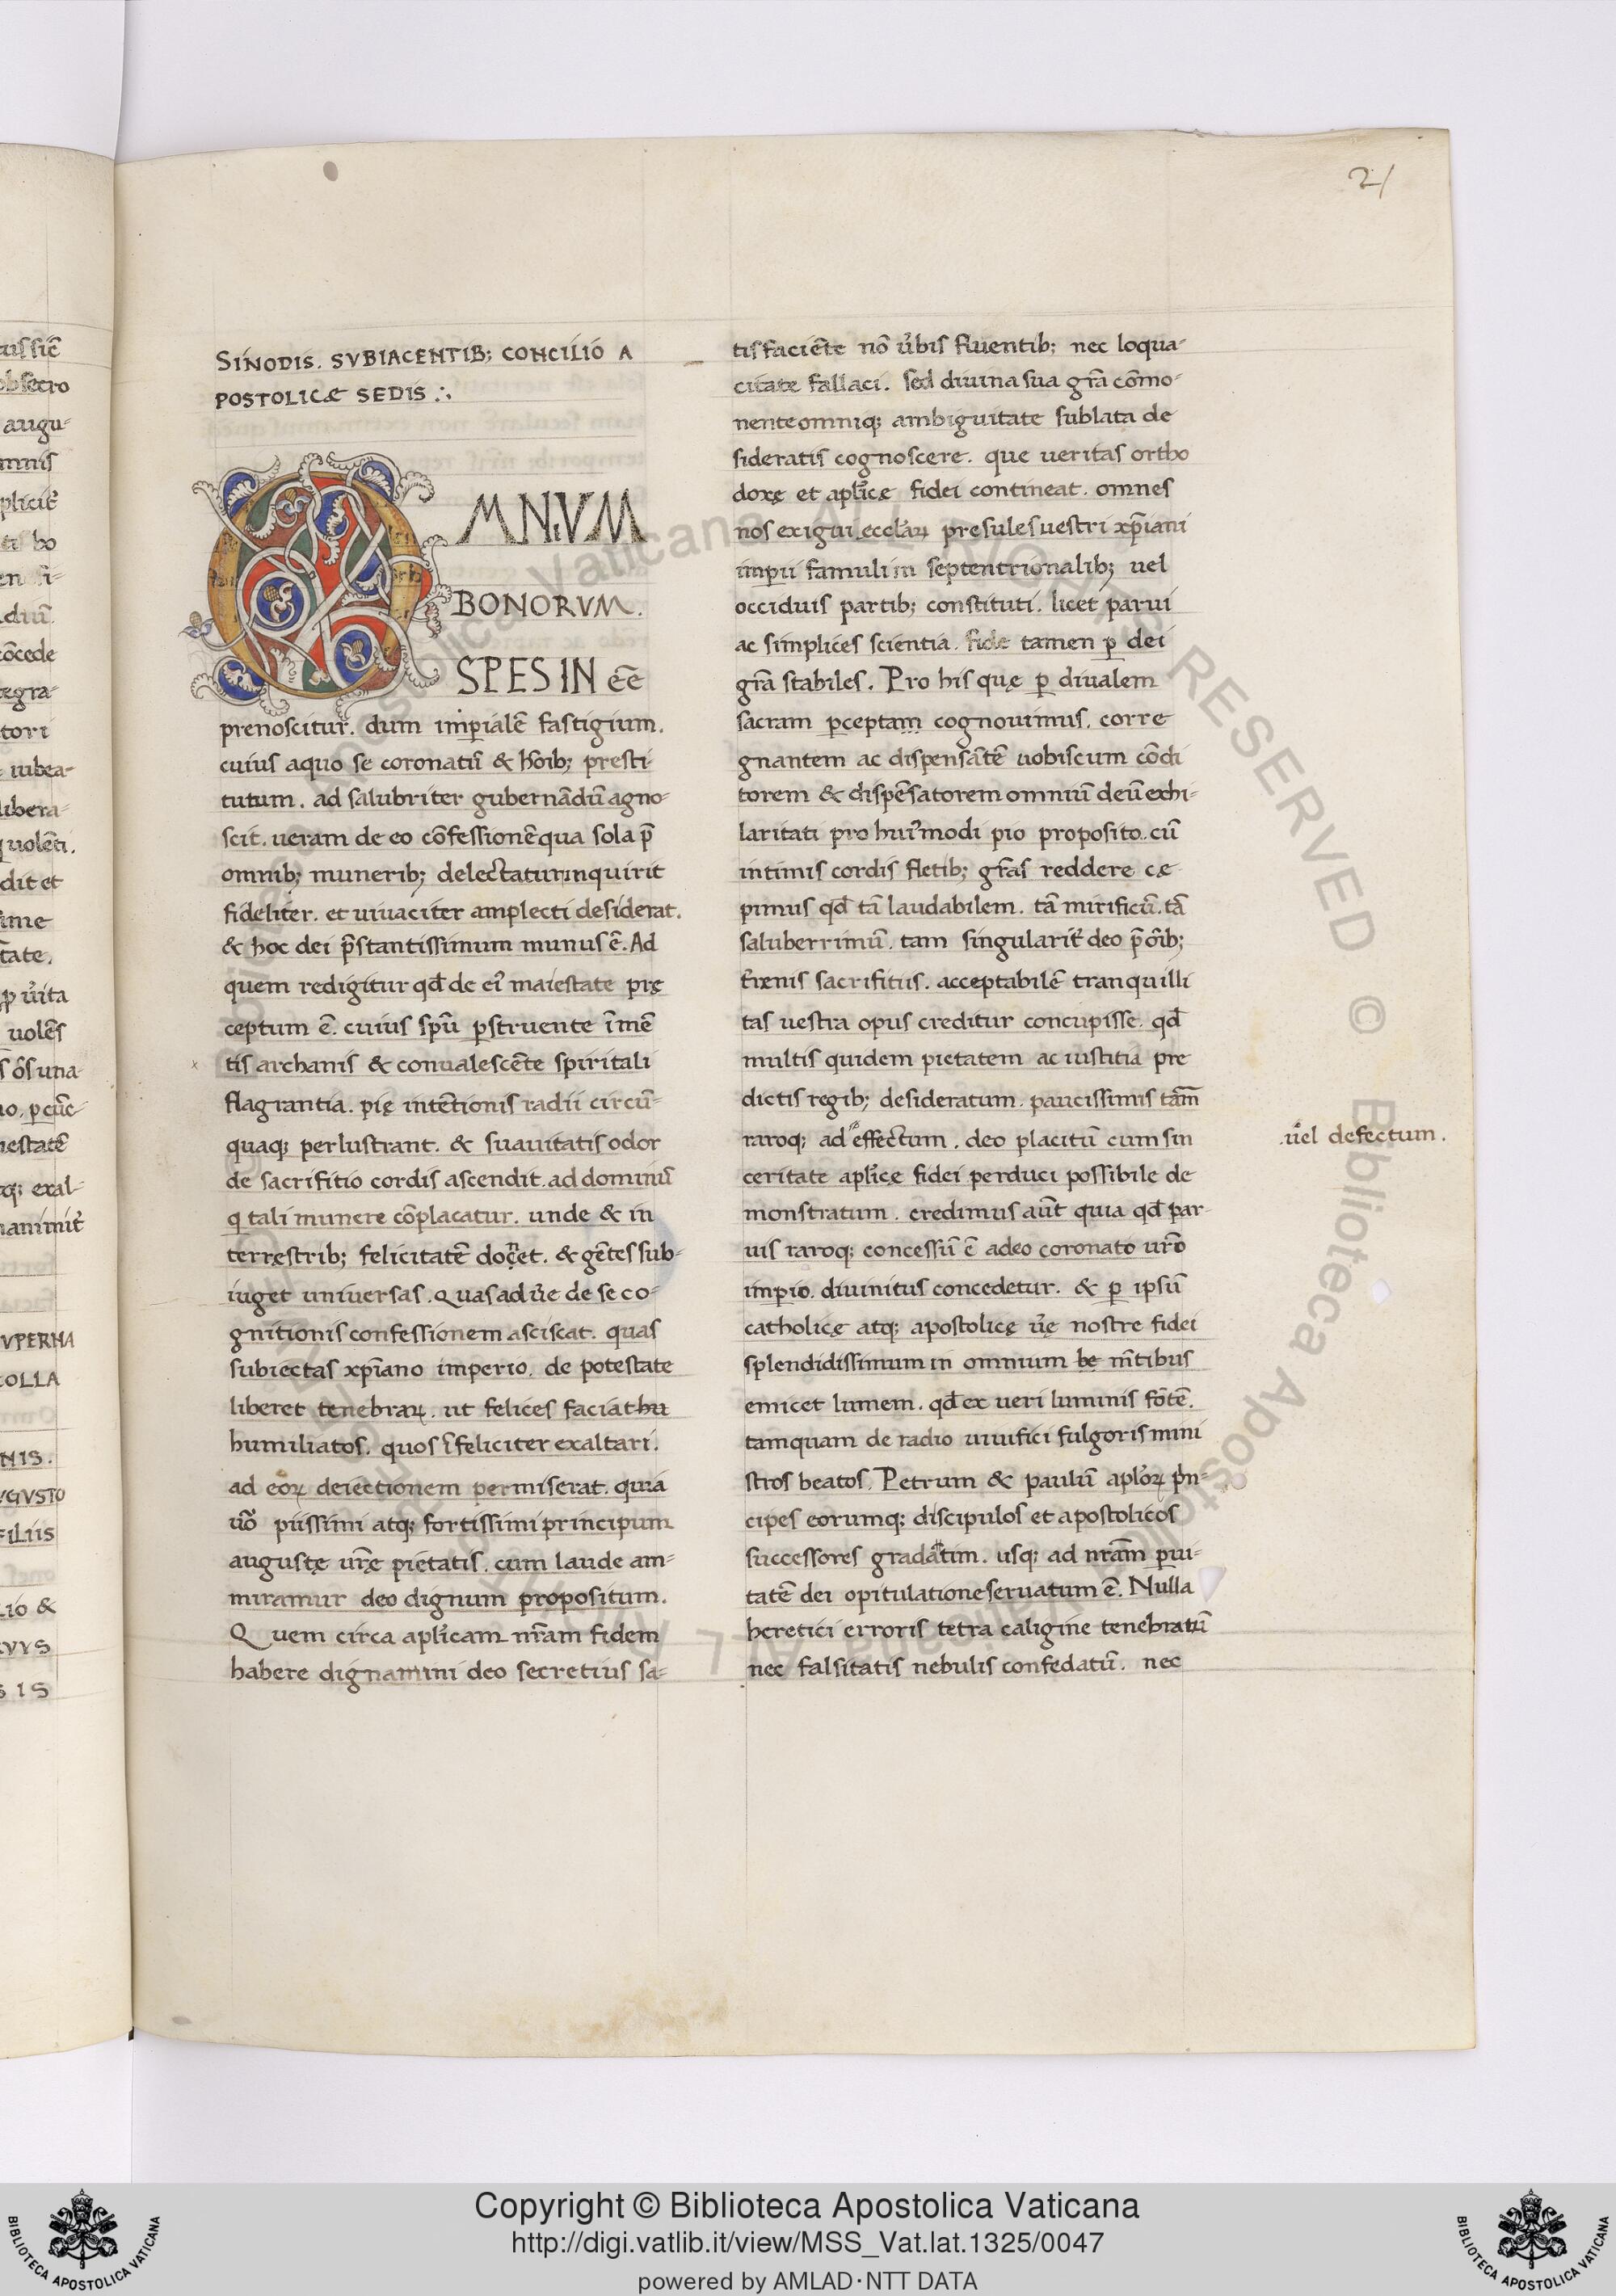 21
uissiē
obsecro
augu-
mnis
plicit᷑
bo
diū.
cōcede
tegra-
tori
iubea-
libera-
uolēti.
dit et
ime
tate.
p̱ u᷑ita
uolēs
o. p̱cūc-
iestatē
tq; exal-
nanimit᷑
VPERNA
COLLA
NIS.
VGVSTO
FILIIS
LIO &
VVS
SIS
SINODIS. SVBIACENTIB; CONCILIO A
POSTOLICÆ SEDIS ∴
OMNIVM
BONORVM.
SPES IN ēē
prenoscitur. dum imp̱ialē fastigium.
cuius aquo se coronatū & hōib; presti-
tutum. ad salubriter gubernādū agno-
scit. ueram de eo cōfessionē qua sola p̄
omnib; munerib; delectatur inquirit
fideliter. et uiuaciter amplecti desiderat.
& hoc dei p̄stantissimum munus ē. Ad
quem redigitur qd̄ de ei᷑ maiestate pre̜
ceptum ē. cuius sp̄u p̱struente ī mē
tis archanis & conualescēte spiritali
flagrantia. pie̜ intētionis radii circū-
quaq; perlustrant. & suauitatis odor
de sacrifitio cordis ascendit. ad dominū
q tali munere cōplacatur. unde & in
terrestrib; felicitatē docet. & gētes sub-
iuget universas. Quas ad u᷑e de se co-
gnitionis confessionem asciscat. quas
subiectas xp̄iano imperio. de potestate
liberet tenebraꝝ. ut felices faciat hu
humiliatos. quos īfeliciter exaltari.
ad eoꝝ deiectionem permiserat. quia
uō piissimi atq; fortissimi principum
auguste̜ ur̄e̜ pietatis. cum laude am-
miramur deo dignum propositum.
Quem circa apl᷑icam nr̄am fidem
habere dignamini deo secretius sa-
tisfaciēte nō u᷑bis fluentib; nec loqua-
citate fallaci. sed diuina sua gr̄a cōmo-
nente omniq; ambiguitate sublata de
sideratis cognoscere. que ueritas ortho
doxe̜ et apl᷑ice̜ fidei contineat. omnes
nos exigui eccl᷑aꝝ presules uestri xp̄iani
imp̱ii famuli in septentrionalib; uel
occiduis partib; constituti. licet parui
ac simplices scientia. fide tamen p̱ dei
gr̄a stabiles. Pro his que̜ p̱ diualem
sacram p̱ceptam cognouimus. corre
gnantem ac dispensātē uobiscum cōdi
torem & dispēsatorem omniū deū exhi-
laritati pro hui᷑modi pio proposito. cū
intimis cordis fletib; gr̄as reddere ce̜
pimus qd̄ tā laudabilem. tā mirificū. tā
saluberrimū. tam singularit᷑ deo p̄ ōib;
t᷑renis sacrifitiis. acceptabilē tranquilli
tas uestra opus creditur concupisse. qd̄
multis quidem pietatem ac iustitia pre
dictis regib; desideratum. paucissimis tam̄
raroq; ad effectum. deo placitū cum sin
ceritate apl᷑ice̜ fidei perduci possibile de
monstratum. credimus aūt quia qd̄ par-
uis raroq; concessū ē adeo coronato ur̄o
imp̱io. diuinitus concedetur. & p̱ ipsū
catholice̜ atq; apostolice̜ u᷑e̜ nostre fidei
splendidissimum in omnium be m̄tibus
emicet lumem. qd̄ ex ueri luminis fōtē.
tamquam de radio uiuifici fulgoris mini
stros beatos. Petrum & paulū apl᷑oꝝ p᷑n-
cipes eorumq; discipulos et apostolicos
successores gradatim. usq; ad nr̄am p̱ui-
tatē dei opitulatione seruatum ē. Nulla
heretici erroris tetra caligine tenebratū
nec falsitatis nebulis confedatū. nec
.u᷑el defectum.
© Biblioteca Apostolica Vaticana ALL RIGHTS RESERVED
Copyright © Biblioteca Apostolica Vaticana
http://digi.vatlib.it/view/MSS_Vat.lat.1325/0047
powered by AMLAD·NTT DATA
BIBLIOTECA APOSTOLICA VATICANA
BIBLIOTECA APOSTOLICA VATICANA